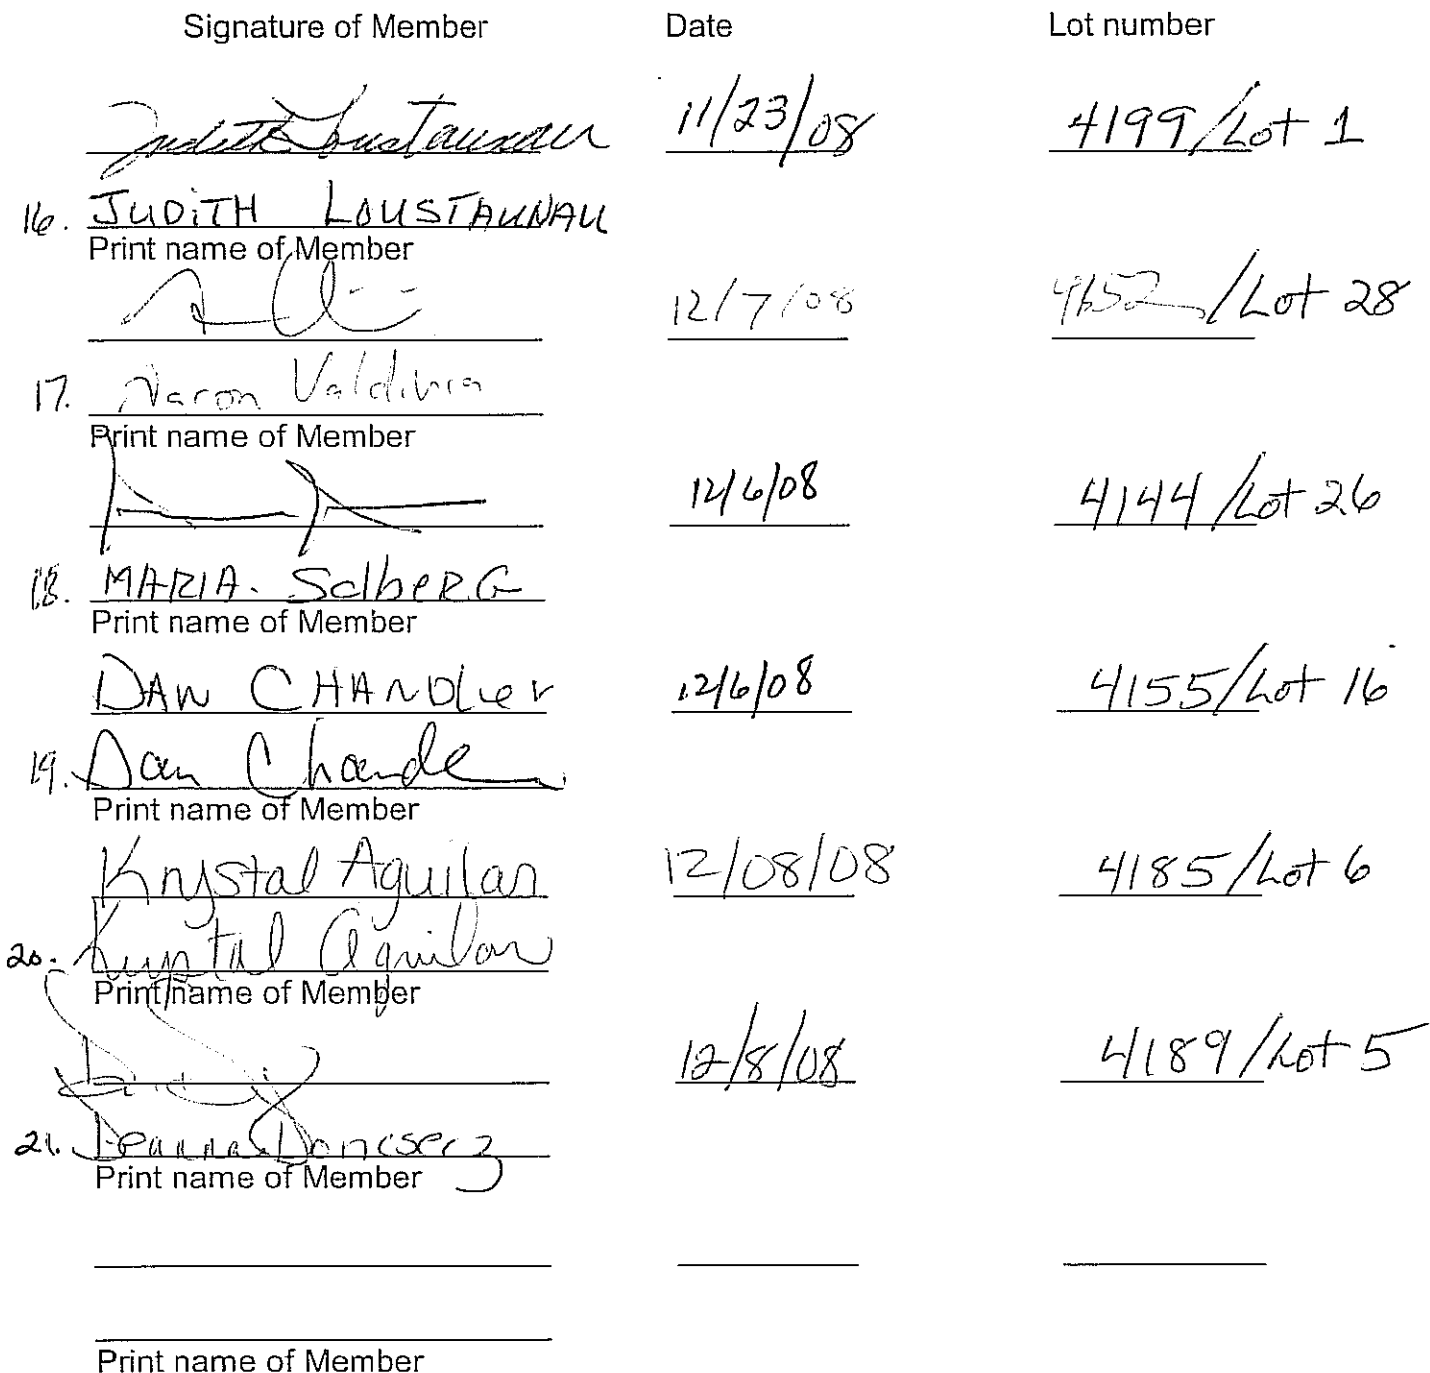 Signature of Member Date Lot number
Judith Loustaunau 11/23/08 4199/Lot 1
16. JUDITH LOUSTAUNAU
Print name of Member
12/7/08 4652/Lot 28
17. Aaron Valdivia
Print name of Member
12/6/08 4144/Lot 26
18. MARIA. SolbeRG
Print name of Member
DAN CHANDler 12/6/08 4155/Lot 16
19. Dan Chandler
Print name of Member
Krystal Aguilar 12/08/08 4185/Lot 6
20. Krystal Aguilar
Print name of Member
12/8/08 4189/Lot 5
21. Deanna Doncsecz
Print name of Member
Print name of Member